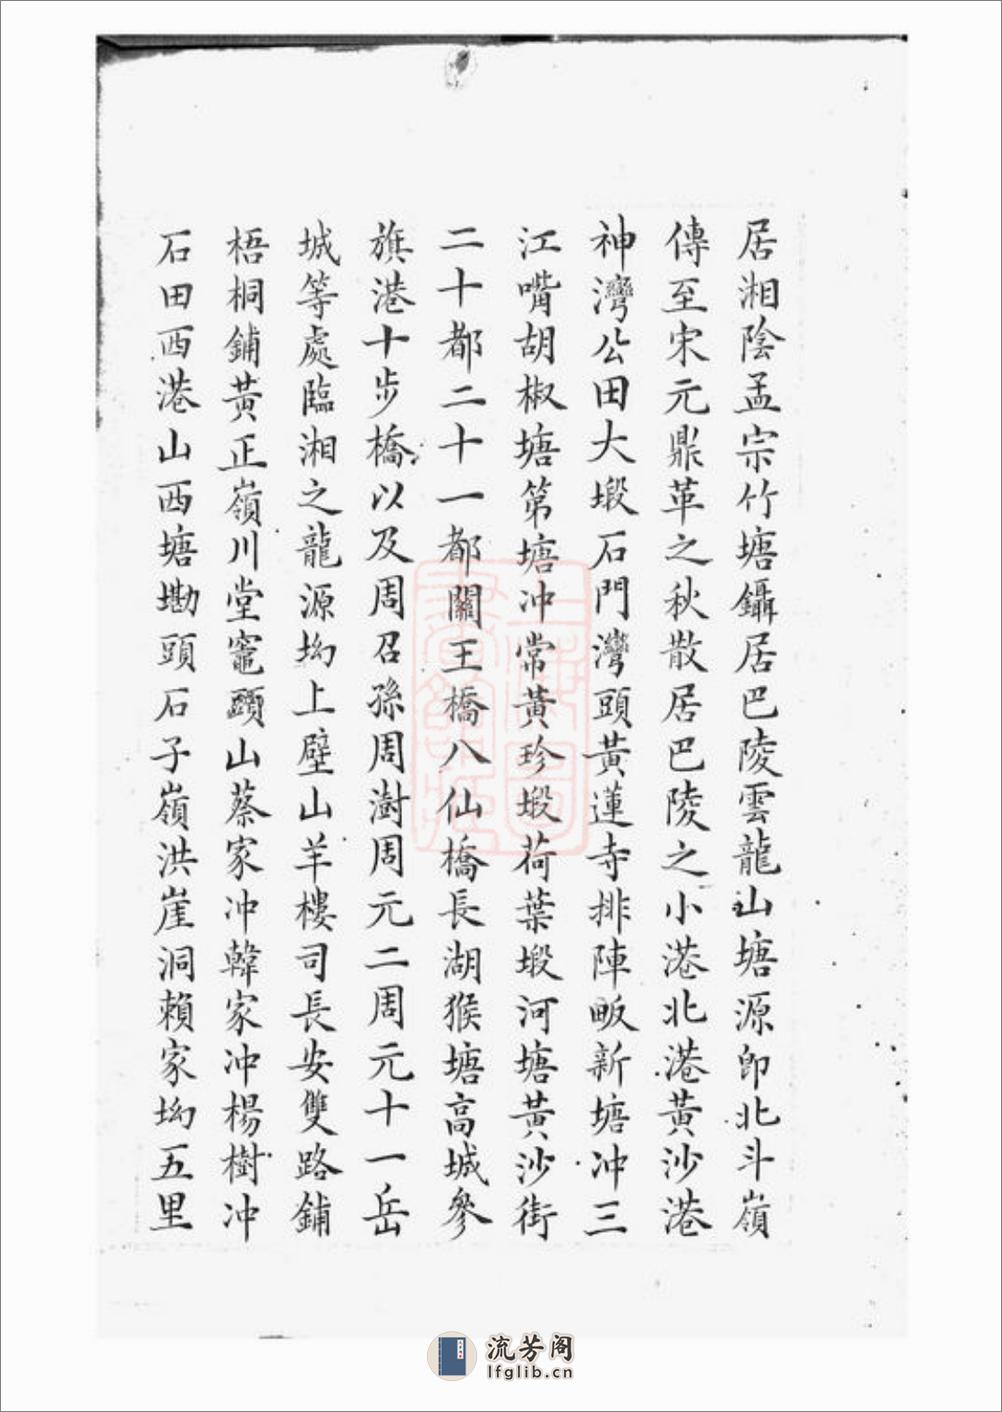 居湘陰孟宗竹塘鑷居巴陵雲龍山塘源即北斗嶺
傳至宋元鼎革之秋散居巴陵之小港北港黃沙港
神灣公田大塅石門灣頭黃蓮寺排陣畈新塘冲三
江嘴胡椒塘第塘冲常黃珍塅荷葉塅河塘黃沙街
二十都二十一都關王橋八仙橋長湖猴塘高城參
旗港十步橋以及周召孫周澍周元二周元十一岳
城等處臨湘之龍源坳上壁山羊樓司長安雙路鋪
梧桐鋪黃正嶺川堂竈頭山蔡家冲韓家冲楊樹冲
石田西港山西塘磡頭石子嶺洪崖洞賴家坳五里
流芳阁
lfglib.cn